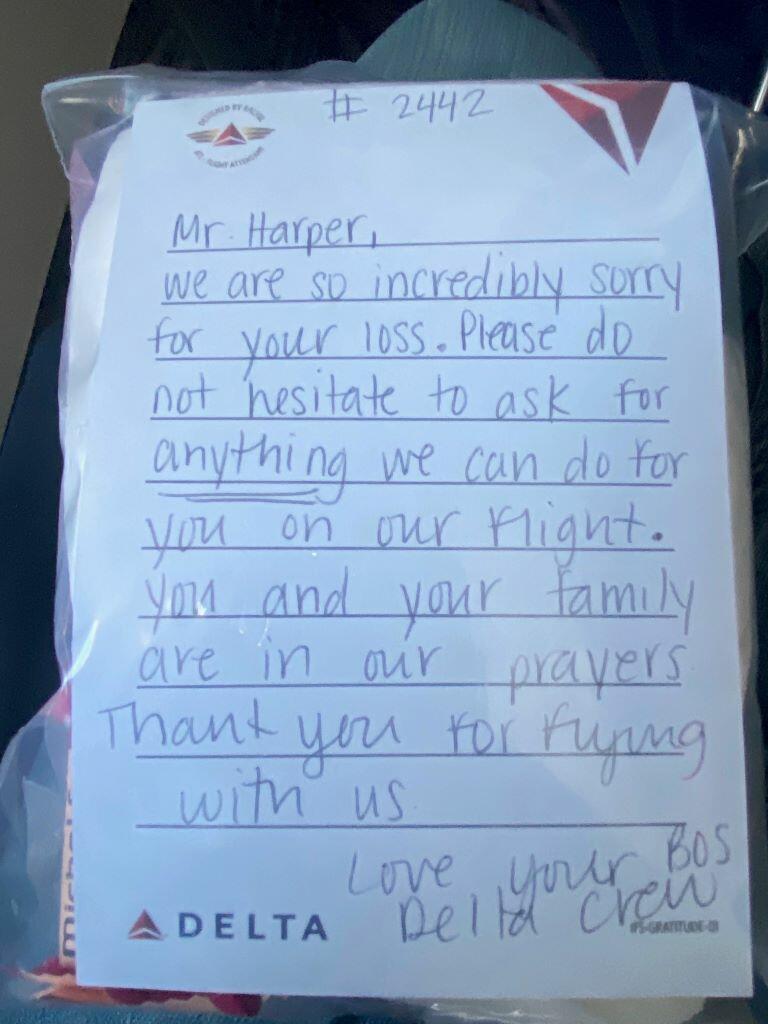 # 2442
Mr. Harper,
we are so incredibly sorry
for your loss. Please do
not hesitate to ask for
anything we can do for
you on our flight.
you and your family
are in our prayers
Thank you for flying
with us
Love your BOS
Delta Crew
DELTA
IFS-GRATITUDE-01